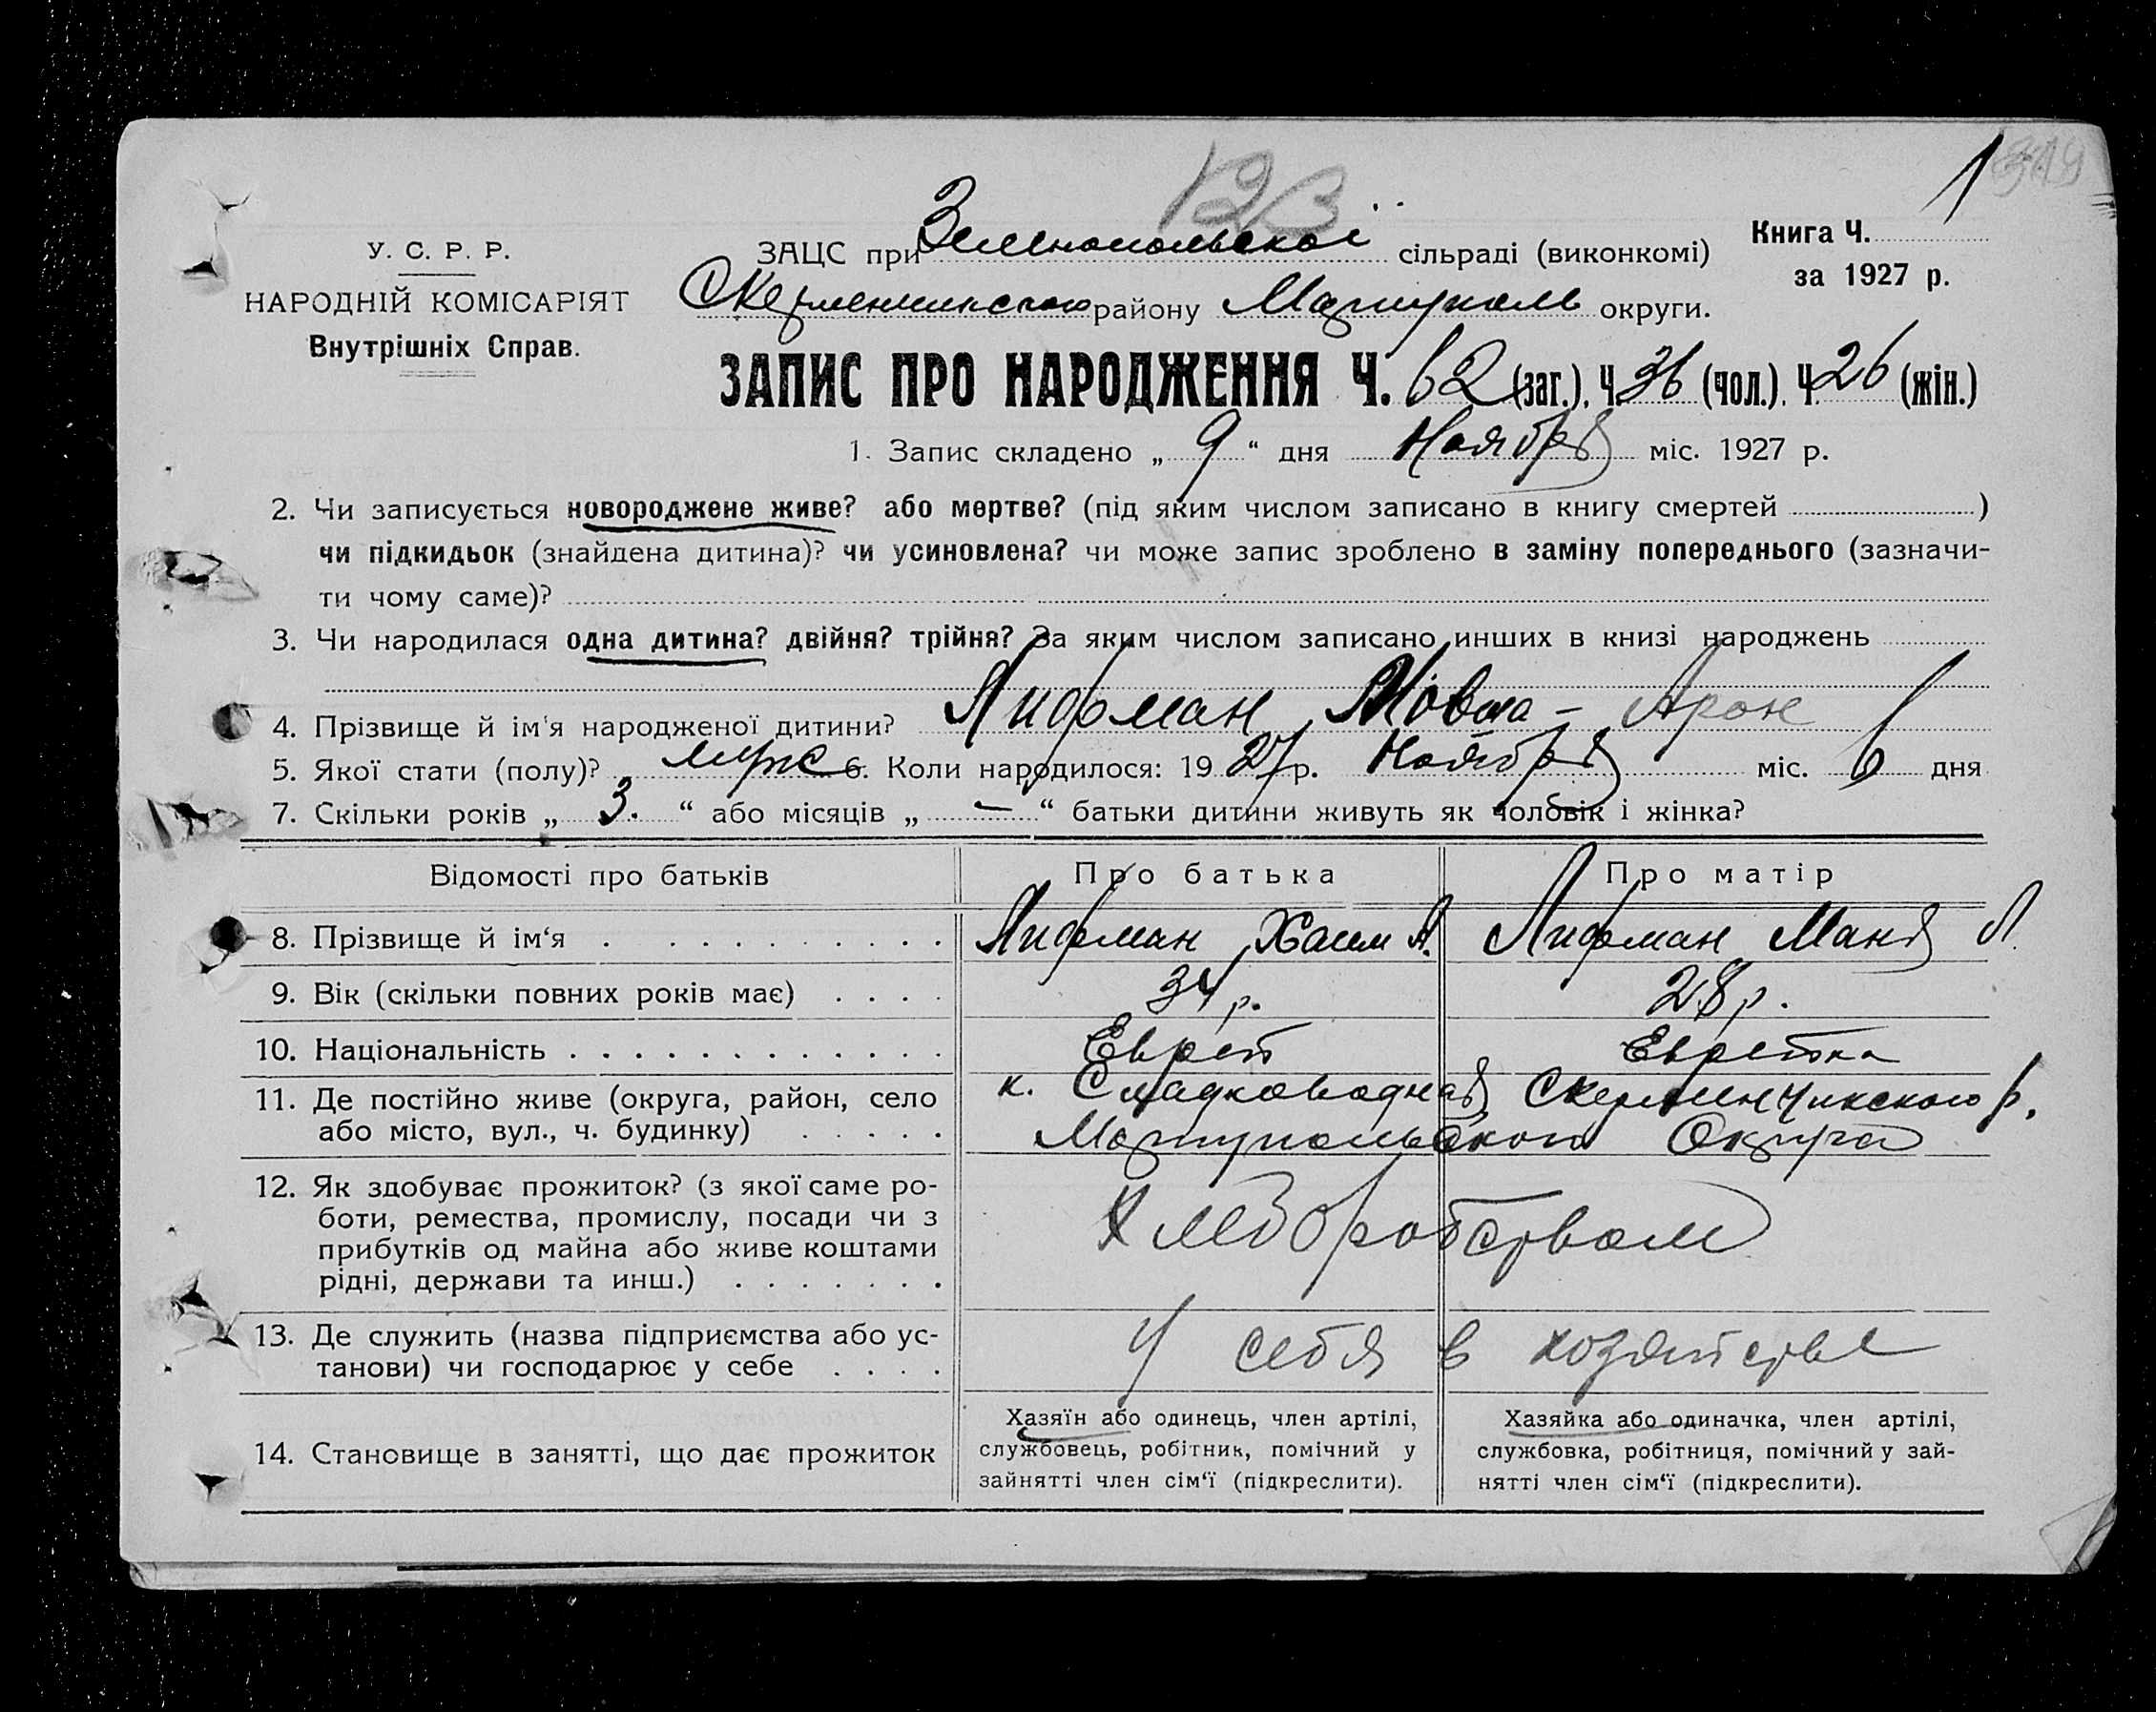 123
1 319
У. С. Р. Р.
НАРОДНІЙ КОМІСАРІЯТ
Внутрішніх Справ.
ЗАЦС при Зеленопольської сільраді (виконкомі)
Книга Ч.
за 1927 р.
Скерменчинского району Мариуполь округи.
ЗАПИС ПРО НАРОДЖЕННЯ Ч. 62 (заг.), Ч. 36 (чол.), Ч. 26 (жін.)
1. Запис складено „ 9 “ дня Ноября міс. 1927 р.
2. Чи записується новороджене живе? або мертве? (під яким числом записано в книгу смертей )
чи підкидьок (знайдена дитина)? чи усиновлена? чи може запис зроблено в заміну попереднього (зазначи-
ти чому саме)?
3. Чи народилася одна дитина? двійня? трійня? За яким числом записано инших в книзі народжень
4. Прізвище й ім'я народженої дитини? Лифман Мовша - Арон
5. Якої стати (полу)? муж 6. Коли народилося: 1927 р. Ноября міс. 6 дня
7. Скільки років „ 3. “ або місяців „ — “ батьки дитини живуть як чоловік і жінка?
Відомості про батьків Про батька Про матір
8. Прізвище й ім‘я Лифман Хаим А. Лифман Маня Л.
9. Вік (скільки повних років має) 34 р. 28 р.
10. Національність Еврей Еврейка
11. Де постійно живе (округа, район, село к. Сладководная Скерменчикского р.
або місто, вул., ч. будинку) Мариупольской Округа
12. Як здобуває прожиток? (з якої саме ро-
боти, ремества, промислу, посади чи з Хлеборобством
прибутків од майна або живе коштами
рідні, держави та инш.)
13. Де служить (назва підприємства або ус- У себя в хозяйстве
танови) чи господарює у себе
14. Становище в занятті, що дає прожиток
Хазяїн або одинець, член артілі,
службовець, робітник, помічний у
зайнятті член сім‘ї (підкреслити).
Хазяйка або одиначка, член артілі,
службовка, робітниця, помічний у зай-
нятті член сім‘ї (підкреслити).